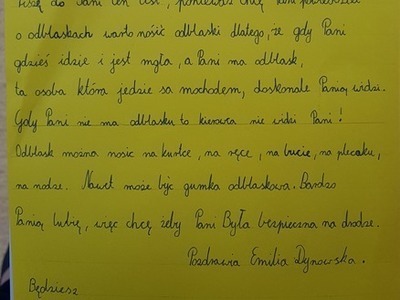 Piszę do Pani ten list, ponieważ chcę Pani powiedzieć
o odblaskach warto nosić odblaski dlatego, że gdy Pani
gdzieś idzie i jest mgła, a Pani ma odblask,
ta osoba która jedzie samochodem, doskonale Panią widzi.
Gdy Pani nie ma odblasku to kierowca nie widzi Pani!
Odblask można nosic na kurtce, na ręce, na bucie, na plecaku,
na nodze. Nawet może być gumka odblaskowa. Bardzo
Panią lubię, więc chcę żeby Pani Była bezpieczna na drodze.
Pozdrawia Emilia Dynowska.
Będziesz